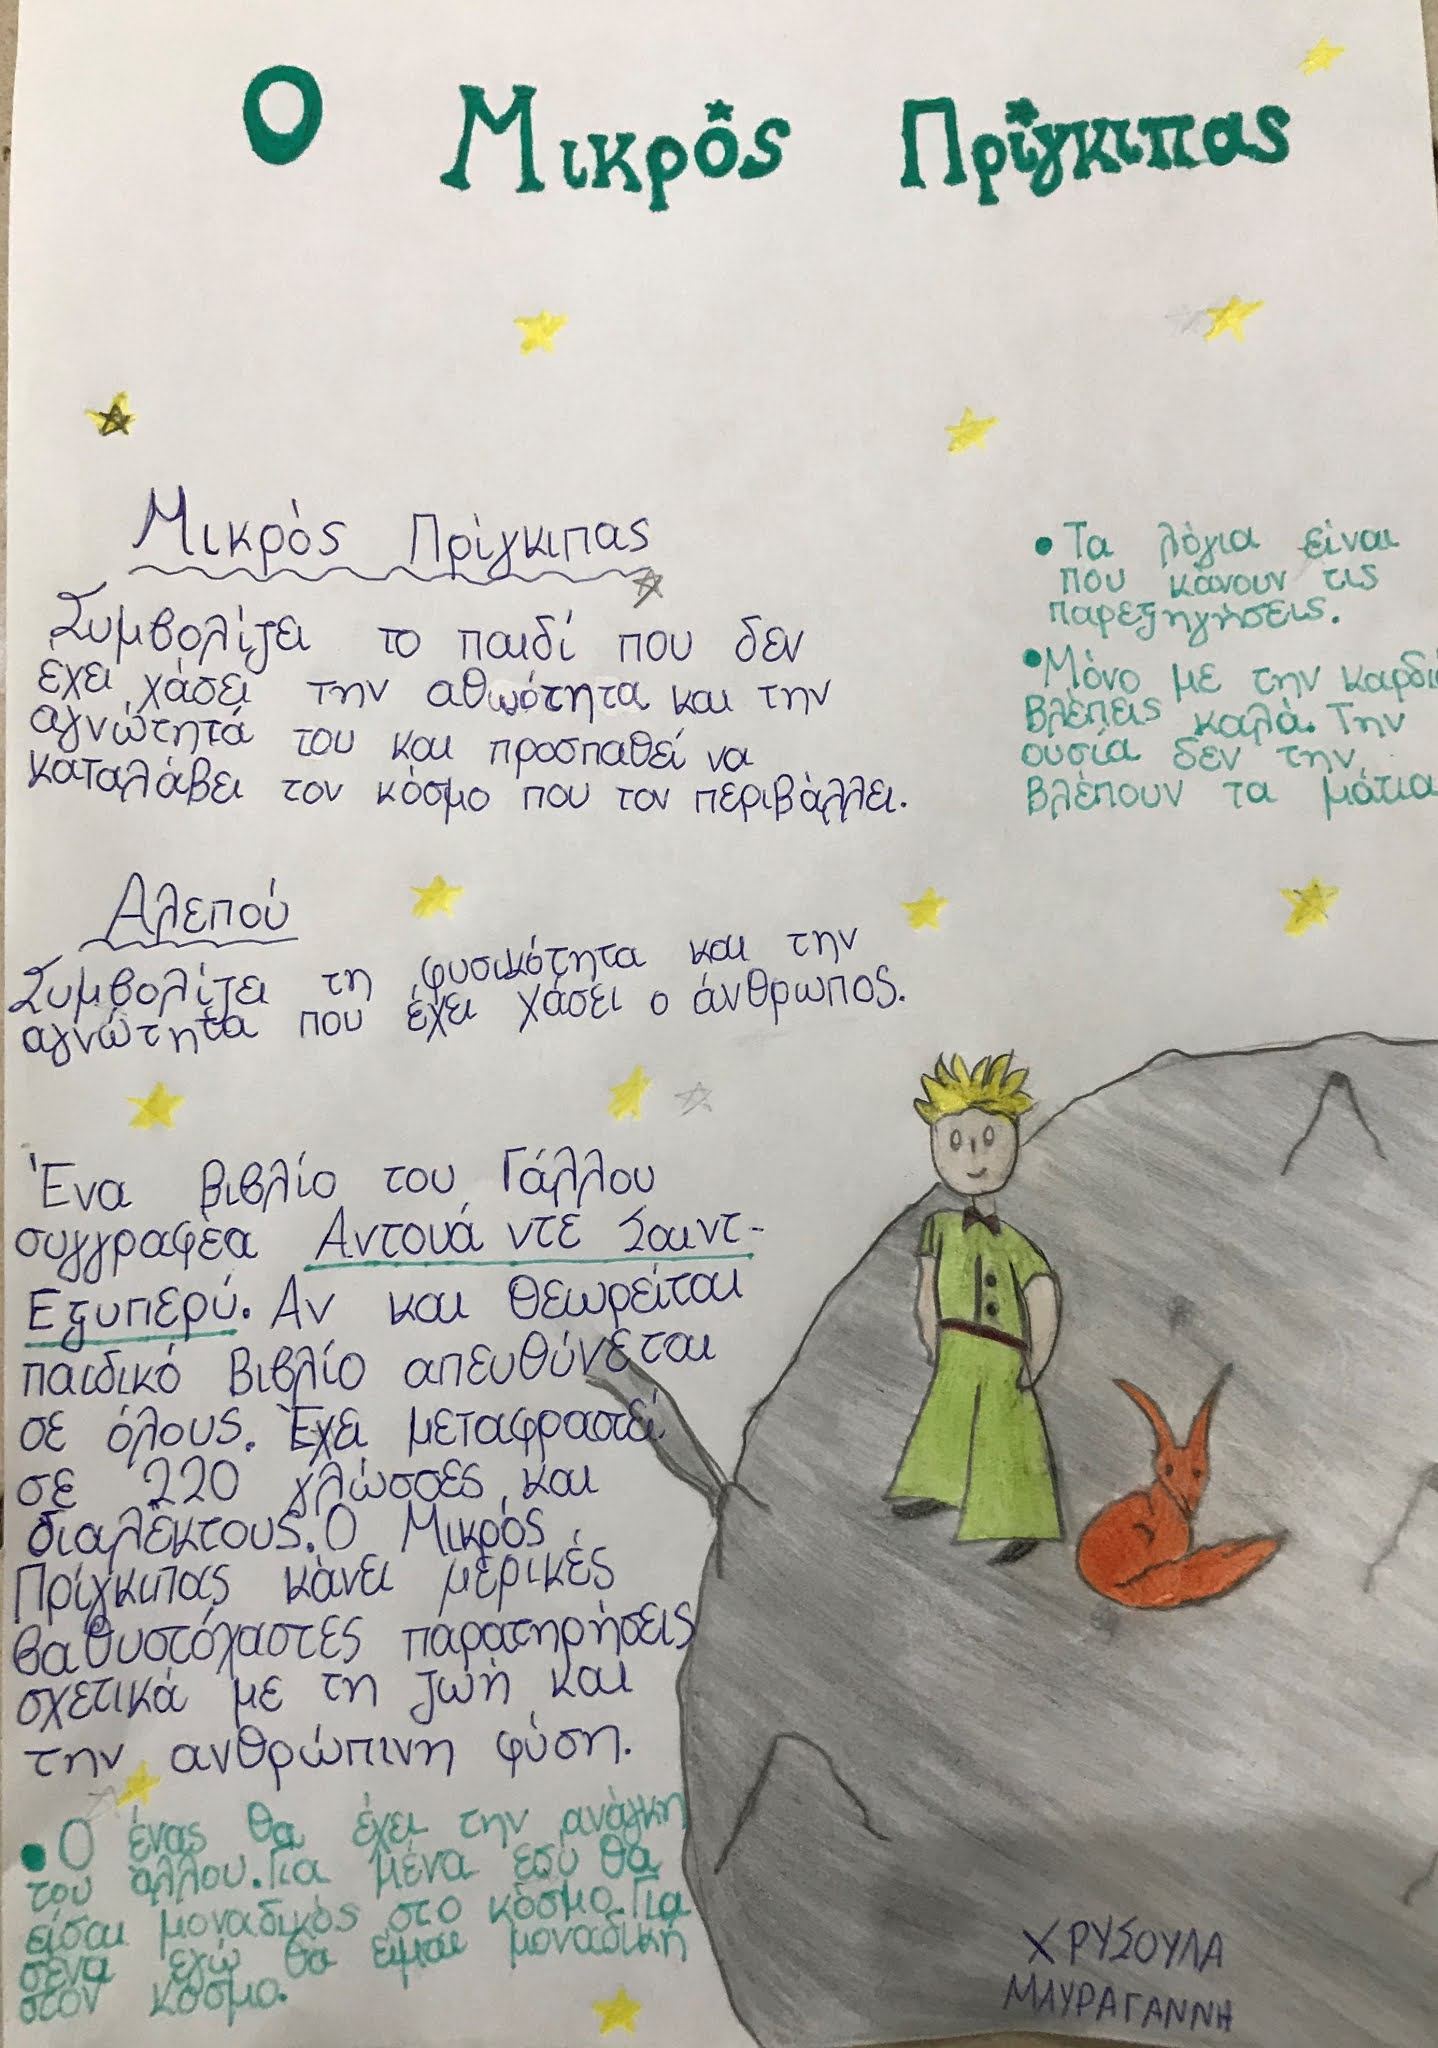 Ο Μικρός Πρίγκιπας
Μικρός Πρίγκιπας
Συμβολίζει το παιδί που δεν
έχει χάσει την αθωότητα και την
αγνώτητά του και προσπαθεί να
καταλάβει τον κόσμο που τον περιβάλλει.
• Τα λόγια είναι
που κάνουν τις
παρεξηγήσεις.
• Μόνο με την καρδιά
βλέπεις καλά. Την
ουσία δεν την
βλέπουν τα μάτια
Αλεπού
Συμβολίζει τη φυσικότητα και την
αγνώτητα που έχει χάσει ο άνθρωπος.
Ένα βιβλίο του Γάλλου
συγγραφέα Αντουά ντε Σαιντ-
Εξυπερύ. Αν και θεωρείται
παιδικό βιβλίο απευθύνεται
σε όλους. Έχει μεταφραστεί
σε 220 γλώσσες και
διαλέκτους. Ο Μικρός
Πρίγκιπας κάνει μερικές
βαθυστόχαστες παρατηρήσεις
σχετικά με τη ζωή και
την ανθρώπινη φύση.
• Ο ένας θα έχει την ανάγκη
του άλλου. Για μένα εσύ θα
είσαι μοναδικός στο κόσμο. Για
σένα εγώ θα είμαι μοναδική
στον κόσμο.
ΧΡΥΣΟΥΛΑ
ΜΑΥΡΑΓΑΝΝΗ